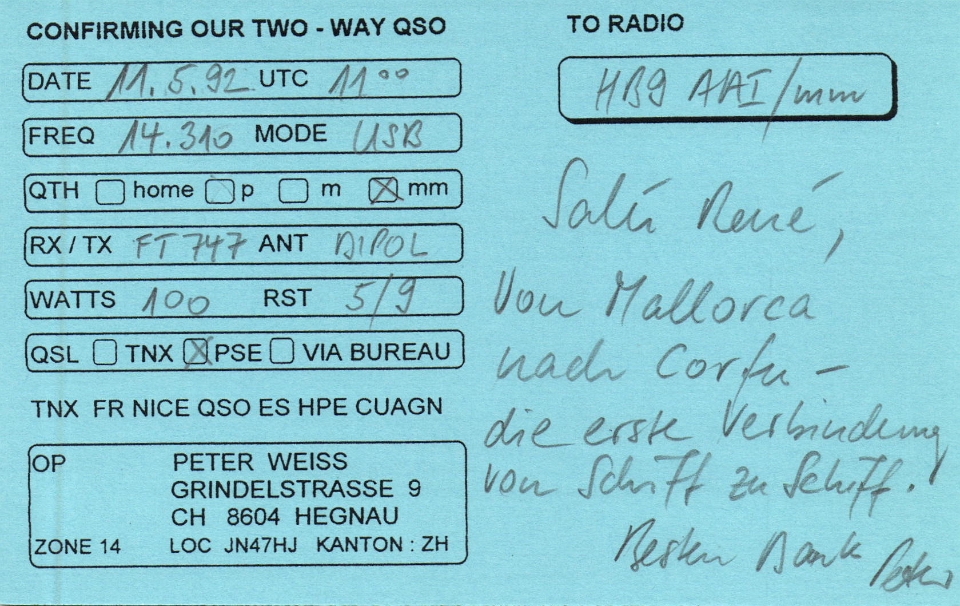 CONFIRMING OUR TWO - WAY QSO
DATE 11.5.92 UTC 11⁰⁰
FREQ 14.310 MODE USB
QTH home p m mm
RX / TX FT 747 ANT DIPOL
WATTS 100 RST 5/9
QSL TNX PSE VIA BUREAU
TNX FR NICE QSO ES HPE CUAGN
OP PETER WEISS
GRINDELSTRASSE 9
CH 8604 HEGNAU
ZONE 14 LOC JN47HJ KANTON : ZH
TO RADIO
HB9 AAI/mm
Salü René,
Von Mallorca
nach Corfu –
die erste Verbindung
von Schiff zu Schiff.
Besten Dank Peter